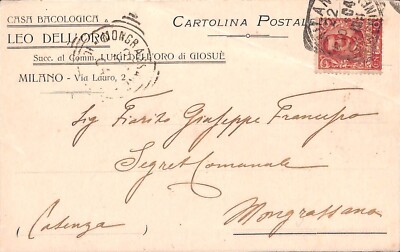 CASA BACOLOGICA
LEO DELL'ORO
Succ. al Comm. LUIGI DELL'ORO DI GIOSUÈ
MILANO - Via Lauro, 2
CARTOLINA POSTALE
MONGRASSANO
Sig Fiorito Giuseppe Francesco
Segret Comunale
(Cosenza)
Mongrassano